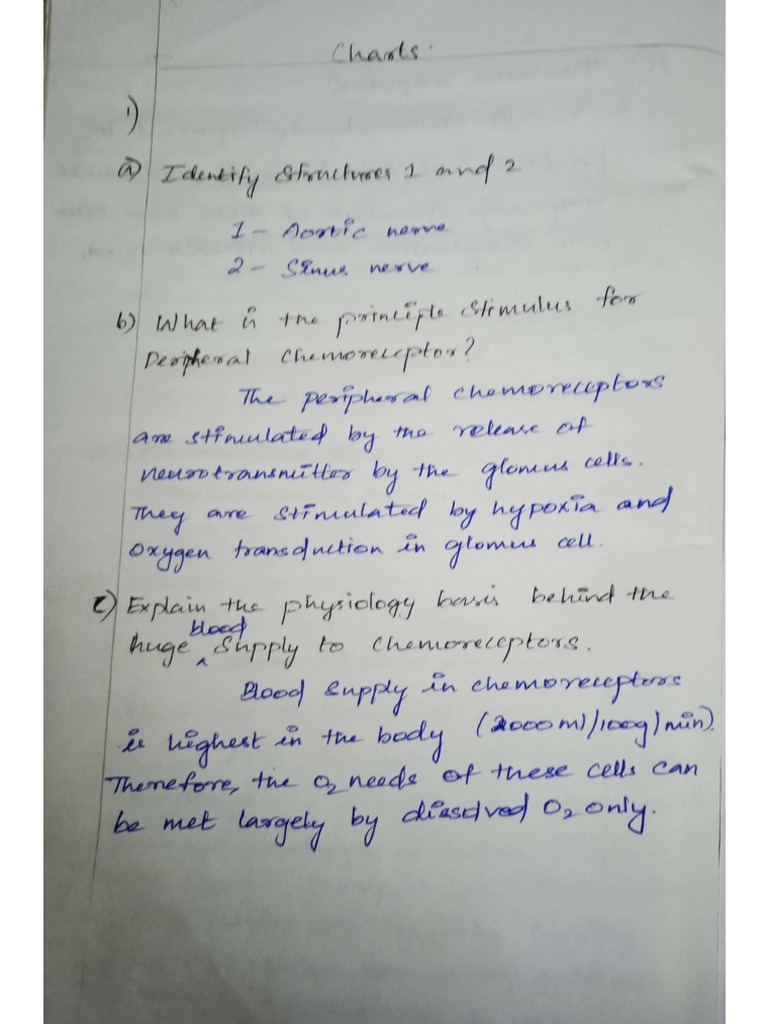 Charts.
1)
a) Identify Structures 1 and 2
1 - Aortic nerve
2 - Sinus nerve
b) What is the principle stimulus for
Peripheral chemoreceptor?
The peripheral chemoreceptors
are stimulated by the release of
neurotransmitter by the glomus cells.
They are stimulated by hypoxia and
oxygen transduction in glomus cell.
c) Explain the physiology basis behind the
huge blood supply to chemoreceptors.
Blood supply in chemoreceptors
is highest in the body (2000ml/100g/min).
Therefore, the O2 needs of these cells can
be met largely by dissolved O2 only.